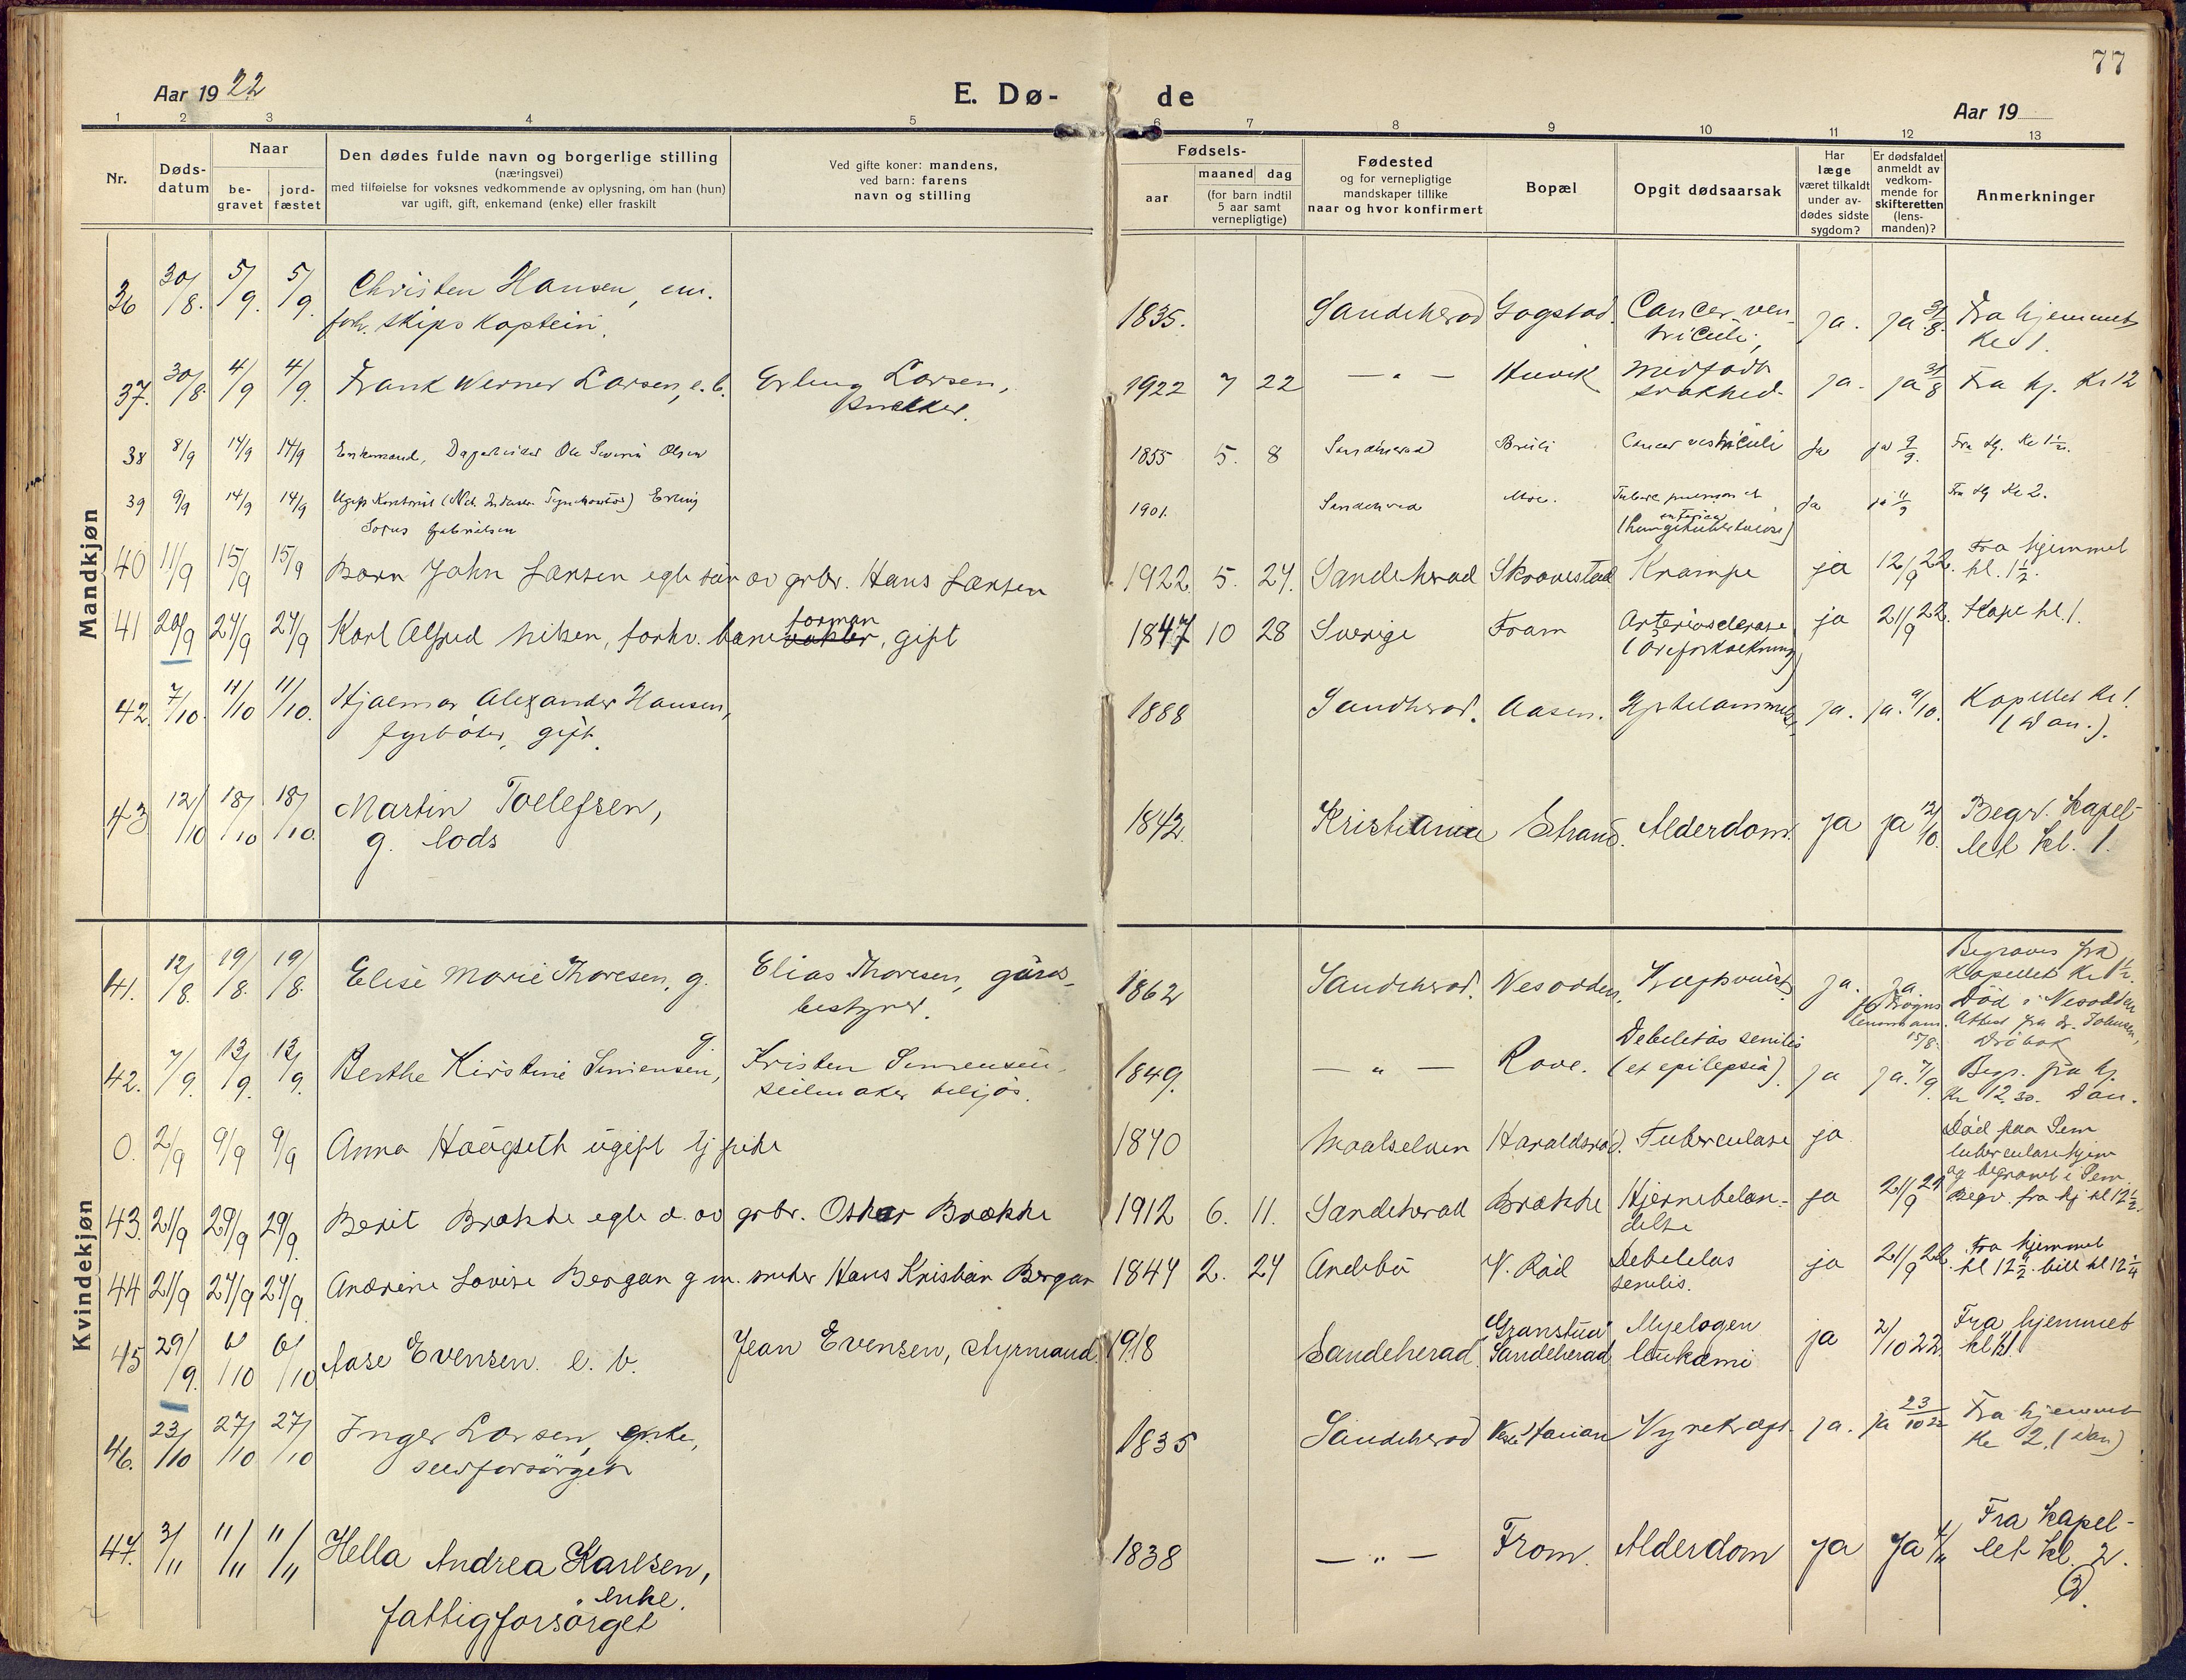 77
Aar 1922
E. Dø-
de
Aar 19
1 2 3 4 5 6 7 8 9 10 11 12 13
Nr.
Døds-
datum
Naar
be-
gravet
jord-
fæstet
Den dødes fulde navn og borgerlige stilling
(næringsvei)
med tilføielse for voksnes vedkommende av oplysning, om han (hun)
var ugift, gift, enkemand (enke) eller fraskilt
Ved gifte koner: mandens,
ved barn: farens
navn og stilling
Fødsels-
aar
maaned dag
(for barn indtil
5 aar samt
vernepligtige)
Fødested
og for vernepligtige
mandskaper tillike
naar og hvor konfirmert
Bopæl
Opgit dødsaarsak
Har
læge
været tilkaldt
under av-
dødes sidste
sygdom?
Er dødsfaldet
anmeldt av
vedkom-
mende for
skifteretten
(lens-
manden)?
Anmerkninger
Mandkjøn
36 30/8. 5/9. 5/9. Christen Hansen, em. 1835. Sandeherad Gogstad. Cancer ven- ja. ja 31/8. Fra hjemmet
forh. skipskaptein. triculi, Kl 1.
37. 30/8. 4/9 4/9. Frank Werner Larsen, e. b. Erling Larsen, 1922 7 22 — " — Huvik medfødt ja. ja 31/8 Fra hj. Kl 12
snekker. svakhed.
38 8/9 14/9 14/9 Enkemand, Dagarbeider Ole Severin Olsen 1855 5. 8 Sandeherad Breili Cancer ventriculi Ja ja 9/9. Fra hj. Kl 1½.
39 9/9 14/9 14/9 Ugift Erling 1901. Sandeherad Moe. Ja ja 11/9 Fra hj Kl 2.
Sofus Gabrielsen (Lungetuberkulose)
40 11/9 15/9 15/9 Barn John Larsen egte søn av grbr. Hans Larsen 1922. 5. 24. Sandeherad Skravestad Krampe ja 12/9 22. Fra hjemmet
kl. 1½.
41 20/9 24/9 24/9 Karl Alfred Nilsen, forhv. baneformand, gift 1847 10 28 Sverige Fram Arteriosclerose ja 21/9 22. Kape kl. 1.
(Åreforkalkning)
42. 7/10. 11/10 11/10. Hjalmar Alexander Hansen, 1888 Sandeherad. Aasen. ja. ja. 9/10. Kapellet Kl 1.
fyrbøter, gift. (Dan.).
43 12/10 18/10 18/10. Martin Toelefsen, 1842. Kristiania Strand. Alderdom. ja ja 12/10. Begr. kapel-
g. lods let kl. 1.
Kvindekjøn
41. 12/8. 19/8. 19/8. Elise Marie Thoresen, g. Elias Thoresen, gårds- 1862 Sandeherad. Nesodden. ja. ja. Begraves fra
bestyrer. Kapellet Kl 1½.
Død i Nesodden
Attest fra dr. Johnsen,
15/8. Drøbak
42. 7/9. 13/9. 13/9. Berthe Kirstine Simensen, g. Kristen Simensen, 1849. — " — Rove. Debeletas senilis ja ja. 7/9. Begr. fra hj.
seilmaker (et epilepsia). Kl 12.30. Dan.
0. 2/9 9/9 9/9 Anna Haagseth ugift tj pike 1840 Maalselven Haraldsrød. Tuberculose ja Død paa Sem
tuberculosehjem
og begravet i Sem.
43. 21/9 29/9 29/9. Berit Brække egte d. av grbr. Oskar Brække 1912 6. 11. Sandeherad Brække Hjernebetæn- ja 21/9 22 Begr. fra hj kl 12½.
delse
44 21/9 27/9 27/9. Anarine Lovise Bergan g m. sneker Hans Kristian Bergan 1847 2. 24 Andebu V. Råd Debeletas ja 21/9 22. Fra hjemmet
senilis. kl 12½. bill kl 12¼
45 29/9. 6/10 6/10 Aase Evensen. e. b. Jean Evensen, styrmand. 1918 Sandeherad "Granstua" Myelogen ja 2/10 22. Fra hjemmet
Sandeherad leukæmi kl 1.
46. 23/10 27/10 27/10 Inger Larsen, enke, 1835 Sandeherad Nyrekræft. ja. ja 23/10 22 Fra hjemmet
selvforsørget Kl 2. (Dan)
47. 3/11 11/11 11/11 Hella Andrea Karlsen, 1838 — " — From. Alderdom ja Ja 4/11 Fra kapel-
enke. let kl. 2.
fattigforsørget